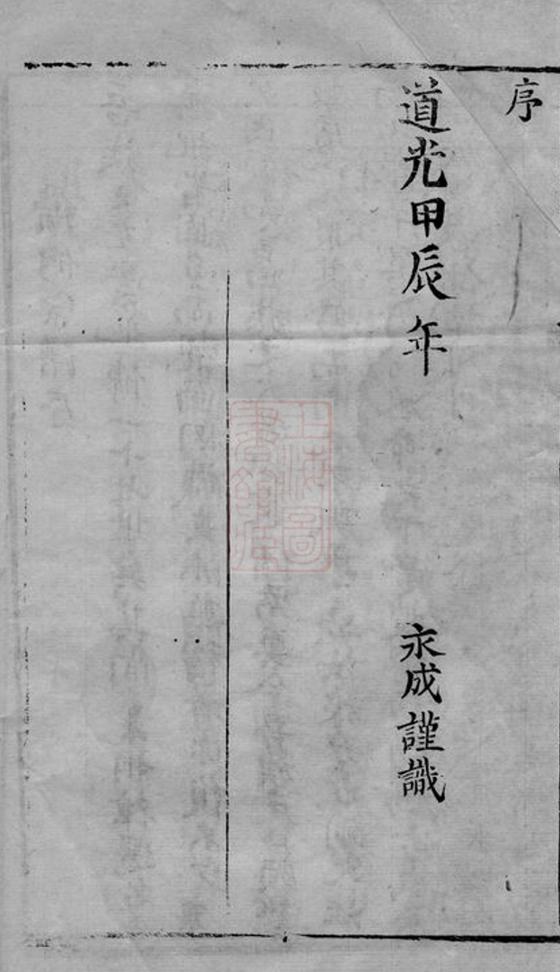 序
道光甲辰年 永成謹識
上海圖書館藏